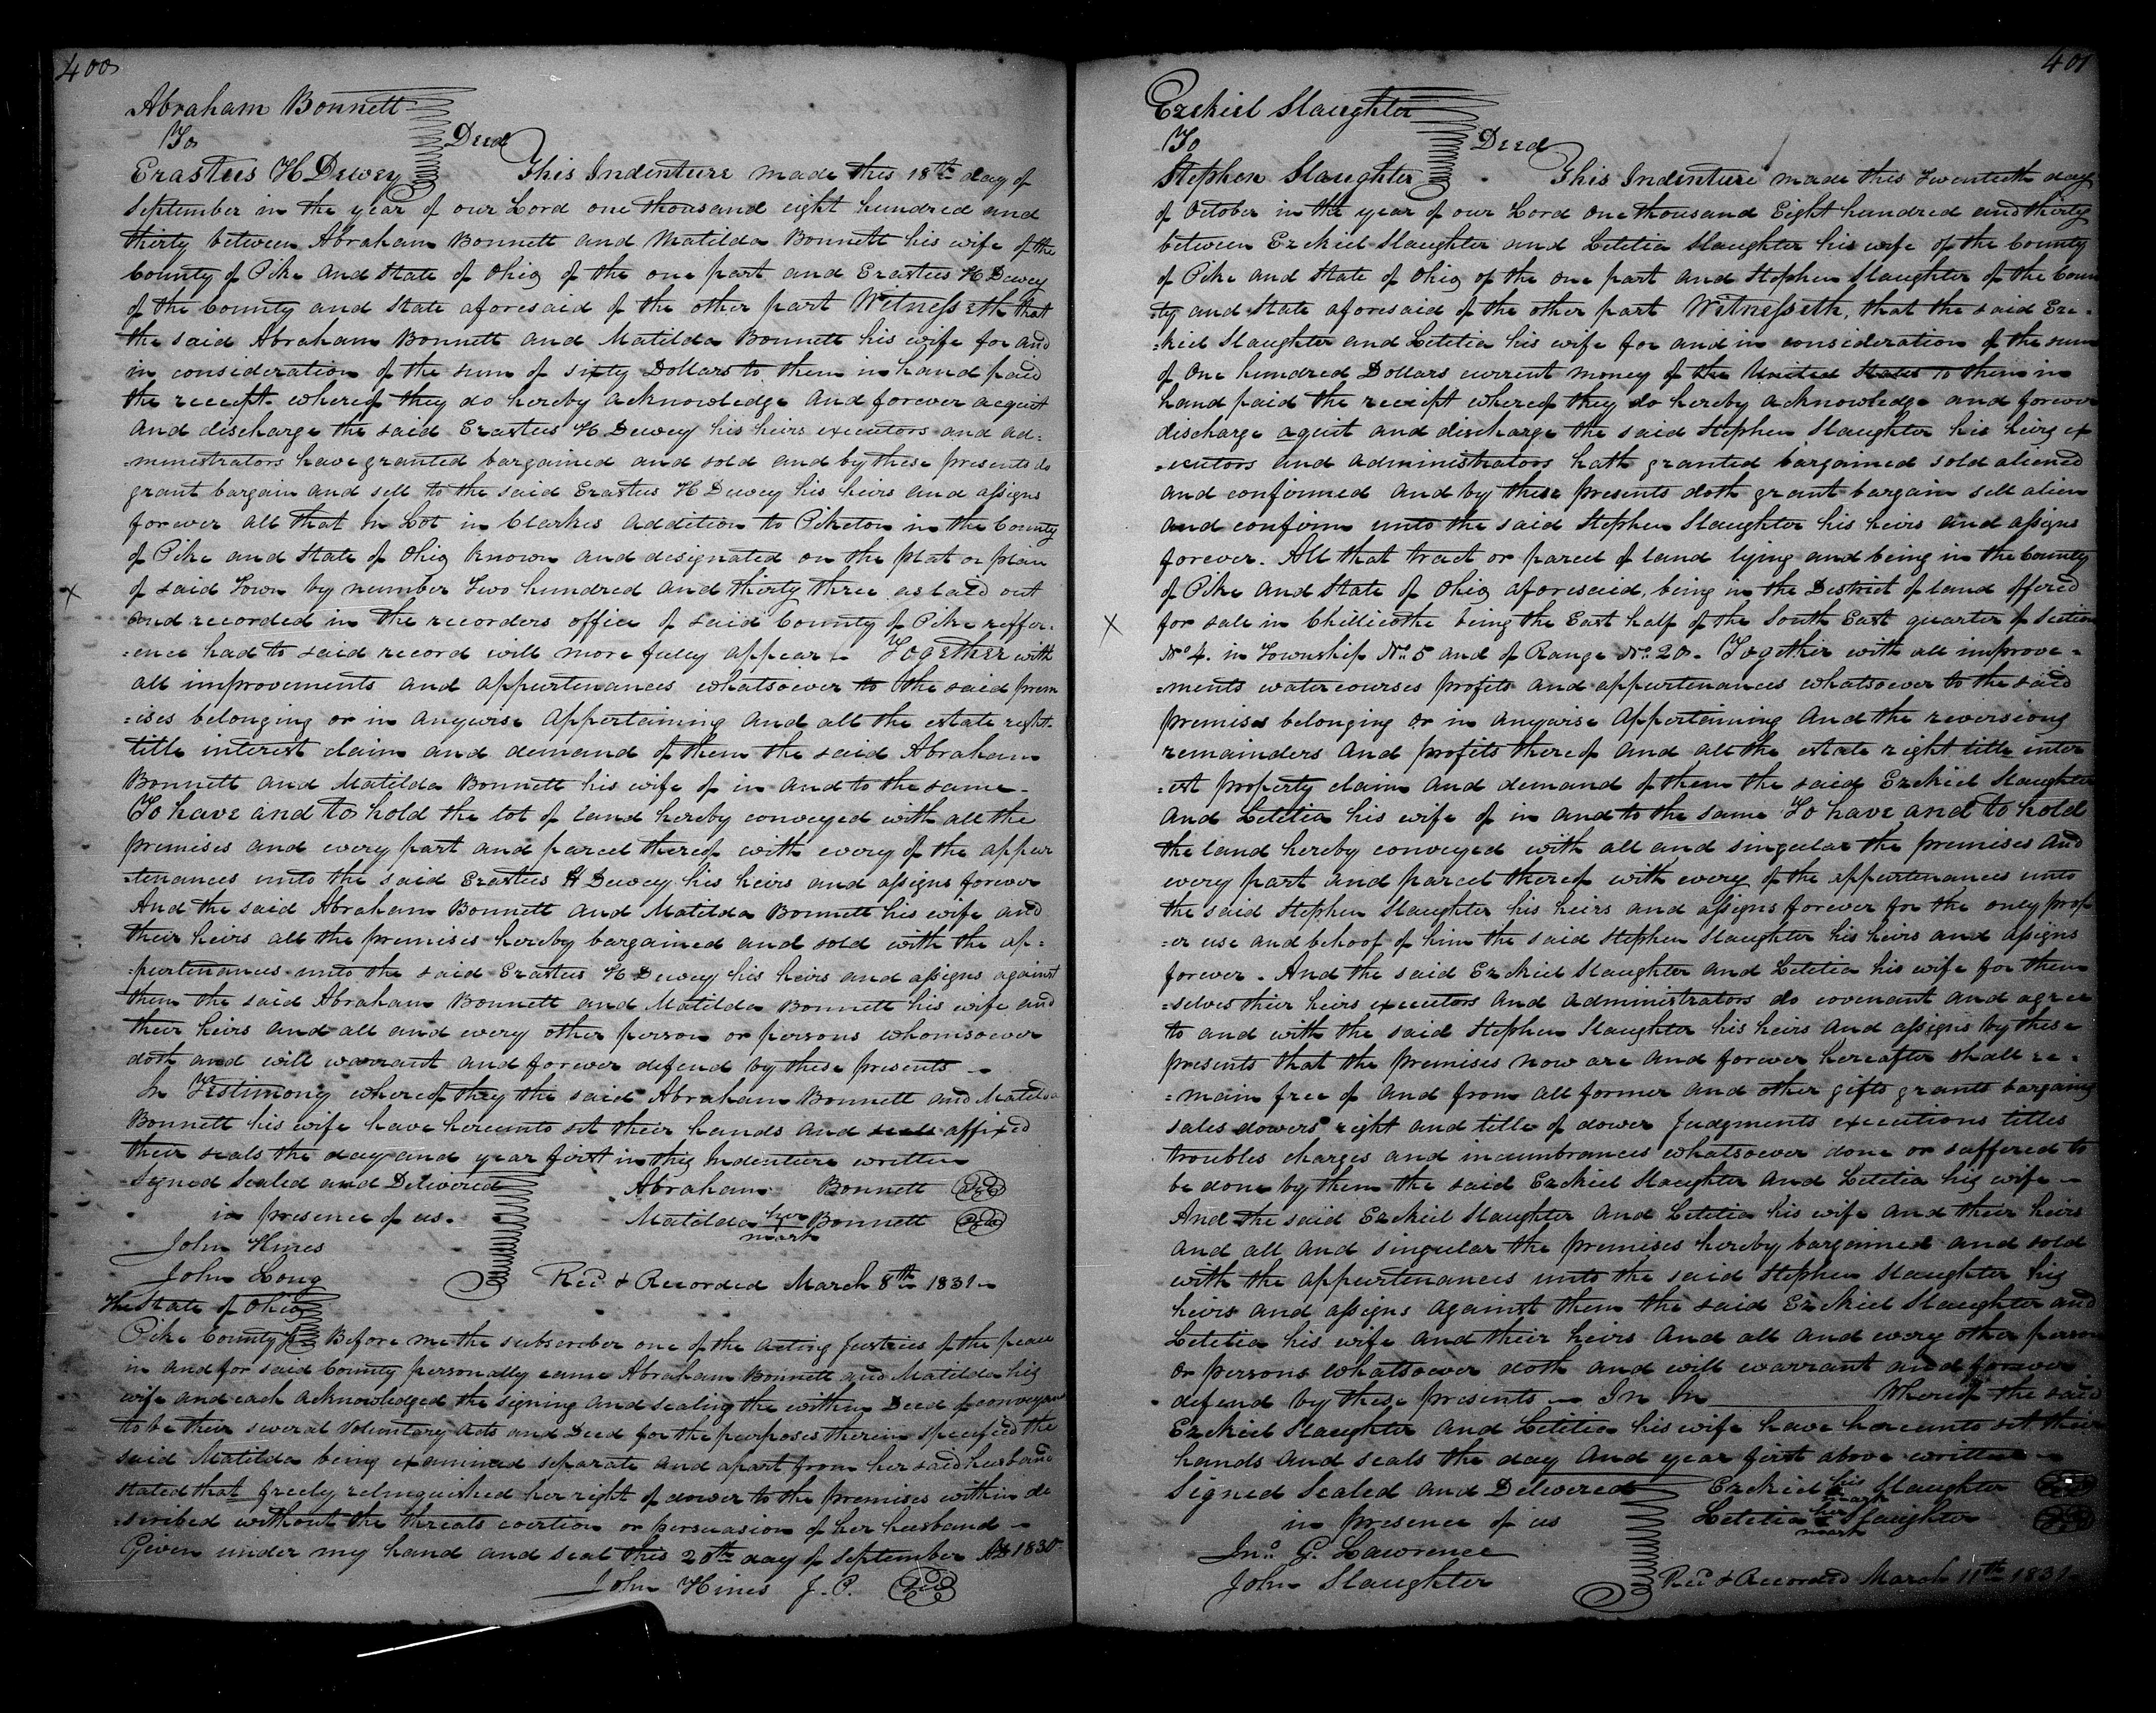 400
Abraham Bonnett
To
Deed
Erastus H Dewey This Indenture made this 18th day of
September in the year of our Lord one thousand eight hundred and
thirty between Abraham Bonnett and Matilda Bonnett his wife of the
County of Pike and State of Ohio of the one part and Erastus H Dewey
of the County and State aforesaid of the other part Witnesseth that
the said Abraham Bonnett and Matilda Bonnett his wife for and
in consideration of the sum of sixty Dollars to them in hand paid
the receipt whereof they do hereby acknowledge and forever acquit
and discharge the said Erastus H Dewey his heirs executors and ad=
=ministrators have granted bargained and sold and by these presents do
grant bargain and sell to the said Erastus H Dewey his heirs and assigns
forever all that In Lot in Clarkes addition to Piketon in the County
of Pike and State of Ohio known and designated on the plat or plan
x of said Town by number Two hundred and thirty three as laid out
and recorded in the recorders office of said County of Pike reffer=
=ence had to said record will more fully appear – Together with
all improvements and appurtenances whatsoever to the said prem
=ises belonging or in anywise appertaining and all the estate right
title interest claim and demand of them the said Abraham
Bonnett and Matilda Bonnett his wife of in and to the same –
To have and to hold the lot of land hereby conveyed with all the
premises and every part and parcel thereof with every of the appur
=tenances unto the said Erastus H Dewey his heirs and assigns forever
And the said Abraham Bonnett and Matilda Bonnett his wife and
their heirs all the premises hereby bargained and sold with the ap=
=purtenances unto the said Erastus H Dewey his heirs and assigns against
them the said Abraham Bonnett and Matilda Bonnett his wife and
their heirs and all and every other person or persons whomsoever
doth and will warrant and forever defend by these presents –
In Testimony whereof they the said Abraham Bonnett and Matilda
Bonnett his wife have hereunto set their hands and seals affixed
their seals the day and year first in this Indenture written
Signed Sealed and Delivered Abraham Bonnett
in presence of us. Matilda her mark Bonnett
John Hines
John Long Recd & Recorded March 8th 1831 –
The State of Ohio
Pike County Before me the subscriber one of the acting Justices of the peace
in and for said County personally came Abraham Bonnett and Matilda his
wife and each acknowledged the signing and sealing the within Deed of conveyance
to be their several Voluntary acts and Deed for the purposes therein specified the
said Matilda being examined separate and apart from her said husband
stated that freely relinquished her right of dower to the premises within de
=scribed without the threats coertion or persuasion of her husband –
Given under my hand and seal this 20th day of September AD 1830
John Hines J. P.
401
Ezekiel Slaughter
To
Deed
Stephen Slaughter This Indenture made this twentieth day
of October in the year of our Lord one thousand Eight hundred and thirty
between Ezekiel Slaughter and Letetia Slaughter his wife of the County
of Pike and State of Ohio of the one part and Stephen Slaughter of the Coun
=ty and State aforesaid of the other part Witnesseth, that the said Eze=
=kiel Slaughter and Letetia his wife for and in consideration of the sum
of One hundred Dollars current money of the United States to them in
hand paid the receipt whereof they do hereby acknowledge and forever
discharge aquit and discharge the said Stephen Slaughter his heirs ex
=ecutors and administrators hath granted bargained sold aliened
and confirmed and by these presents doth grant bargain sell alien
and confirm unto the said Stephen Slaughter his heirs and assigns
forever. All that tract or parcel of land lying and being in the County
of Pike and State of Ohio aforesaid, being in the District of land offered
x for sale in Chillicothe being the East half of the South East quarter of Section
No 4. in Township No. 5 and of Range No. 20. Together with all improve=
=ments watercourses profits and appurtenances whatsoever to the said
premises belonging or in anywise appertaining and the reversions
remainders and profits thereof and all the estate right title inter
=est property claim and demand of them the said Ezekiel Slaughter
and Letetia his wife of in and to the same To have and to hold
the land hereby conveyed with all and singular the premises and
every part and parcel thereof with every of the appurtenances unto
the said Stephen Slaughter his heirs and assigns forever for the only prop
=er use and behoof of him the said Stephen Slaughter his heirs and assigns
forever. And the said Ezekiel Slaughter and Letetia his wife for them
=selves their heirs executors and administrators do covenant and agree
to and with the said Stephen Slaughter his heirs and assigns by these
presents that the premises now are and forever hereafter shall re=
=main free of and from all former and other gifts grants bargains
sales dowers right and title of dower Judgments executions titles
troubles charges and incumbrances whatsoever done or saffered to
be done by them the said Ezekiel Slaughter and Letetia his wife –
And the said Ezekiel Slaughter and Letetia his wife and their heirs
and all and singular the premises hereby bargained and sold
with the appurtenances unto the said Stephen Slaughter his
heirs and assigns against them the said Ezekiel Slaughter and
Letetia his wife and their heirs and all and every other person
or persons whatsoever doth and will warrant and forever
defend by these presents – In In ______ Whereof the said
Ezekiel Slaughter and Letetia his wife have hereunto set their
hands and seals the day and year first above written –
Signed Sealed and Delivered Ezekiel his mark Slaughter
in presence of us Letetia her mark Slaughter
Jno. G. Lawrence
John Slaughter Recd & Recorded March 11th 1831